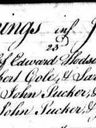 ings in J
23
of Edward Hodso
bert Cole, & Sa
John Tucker, &
John Tucker, &